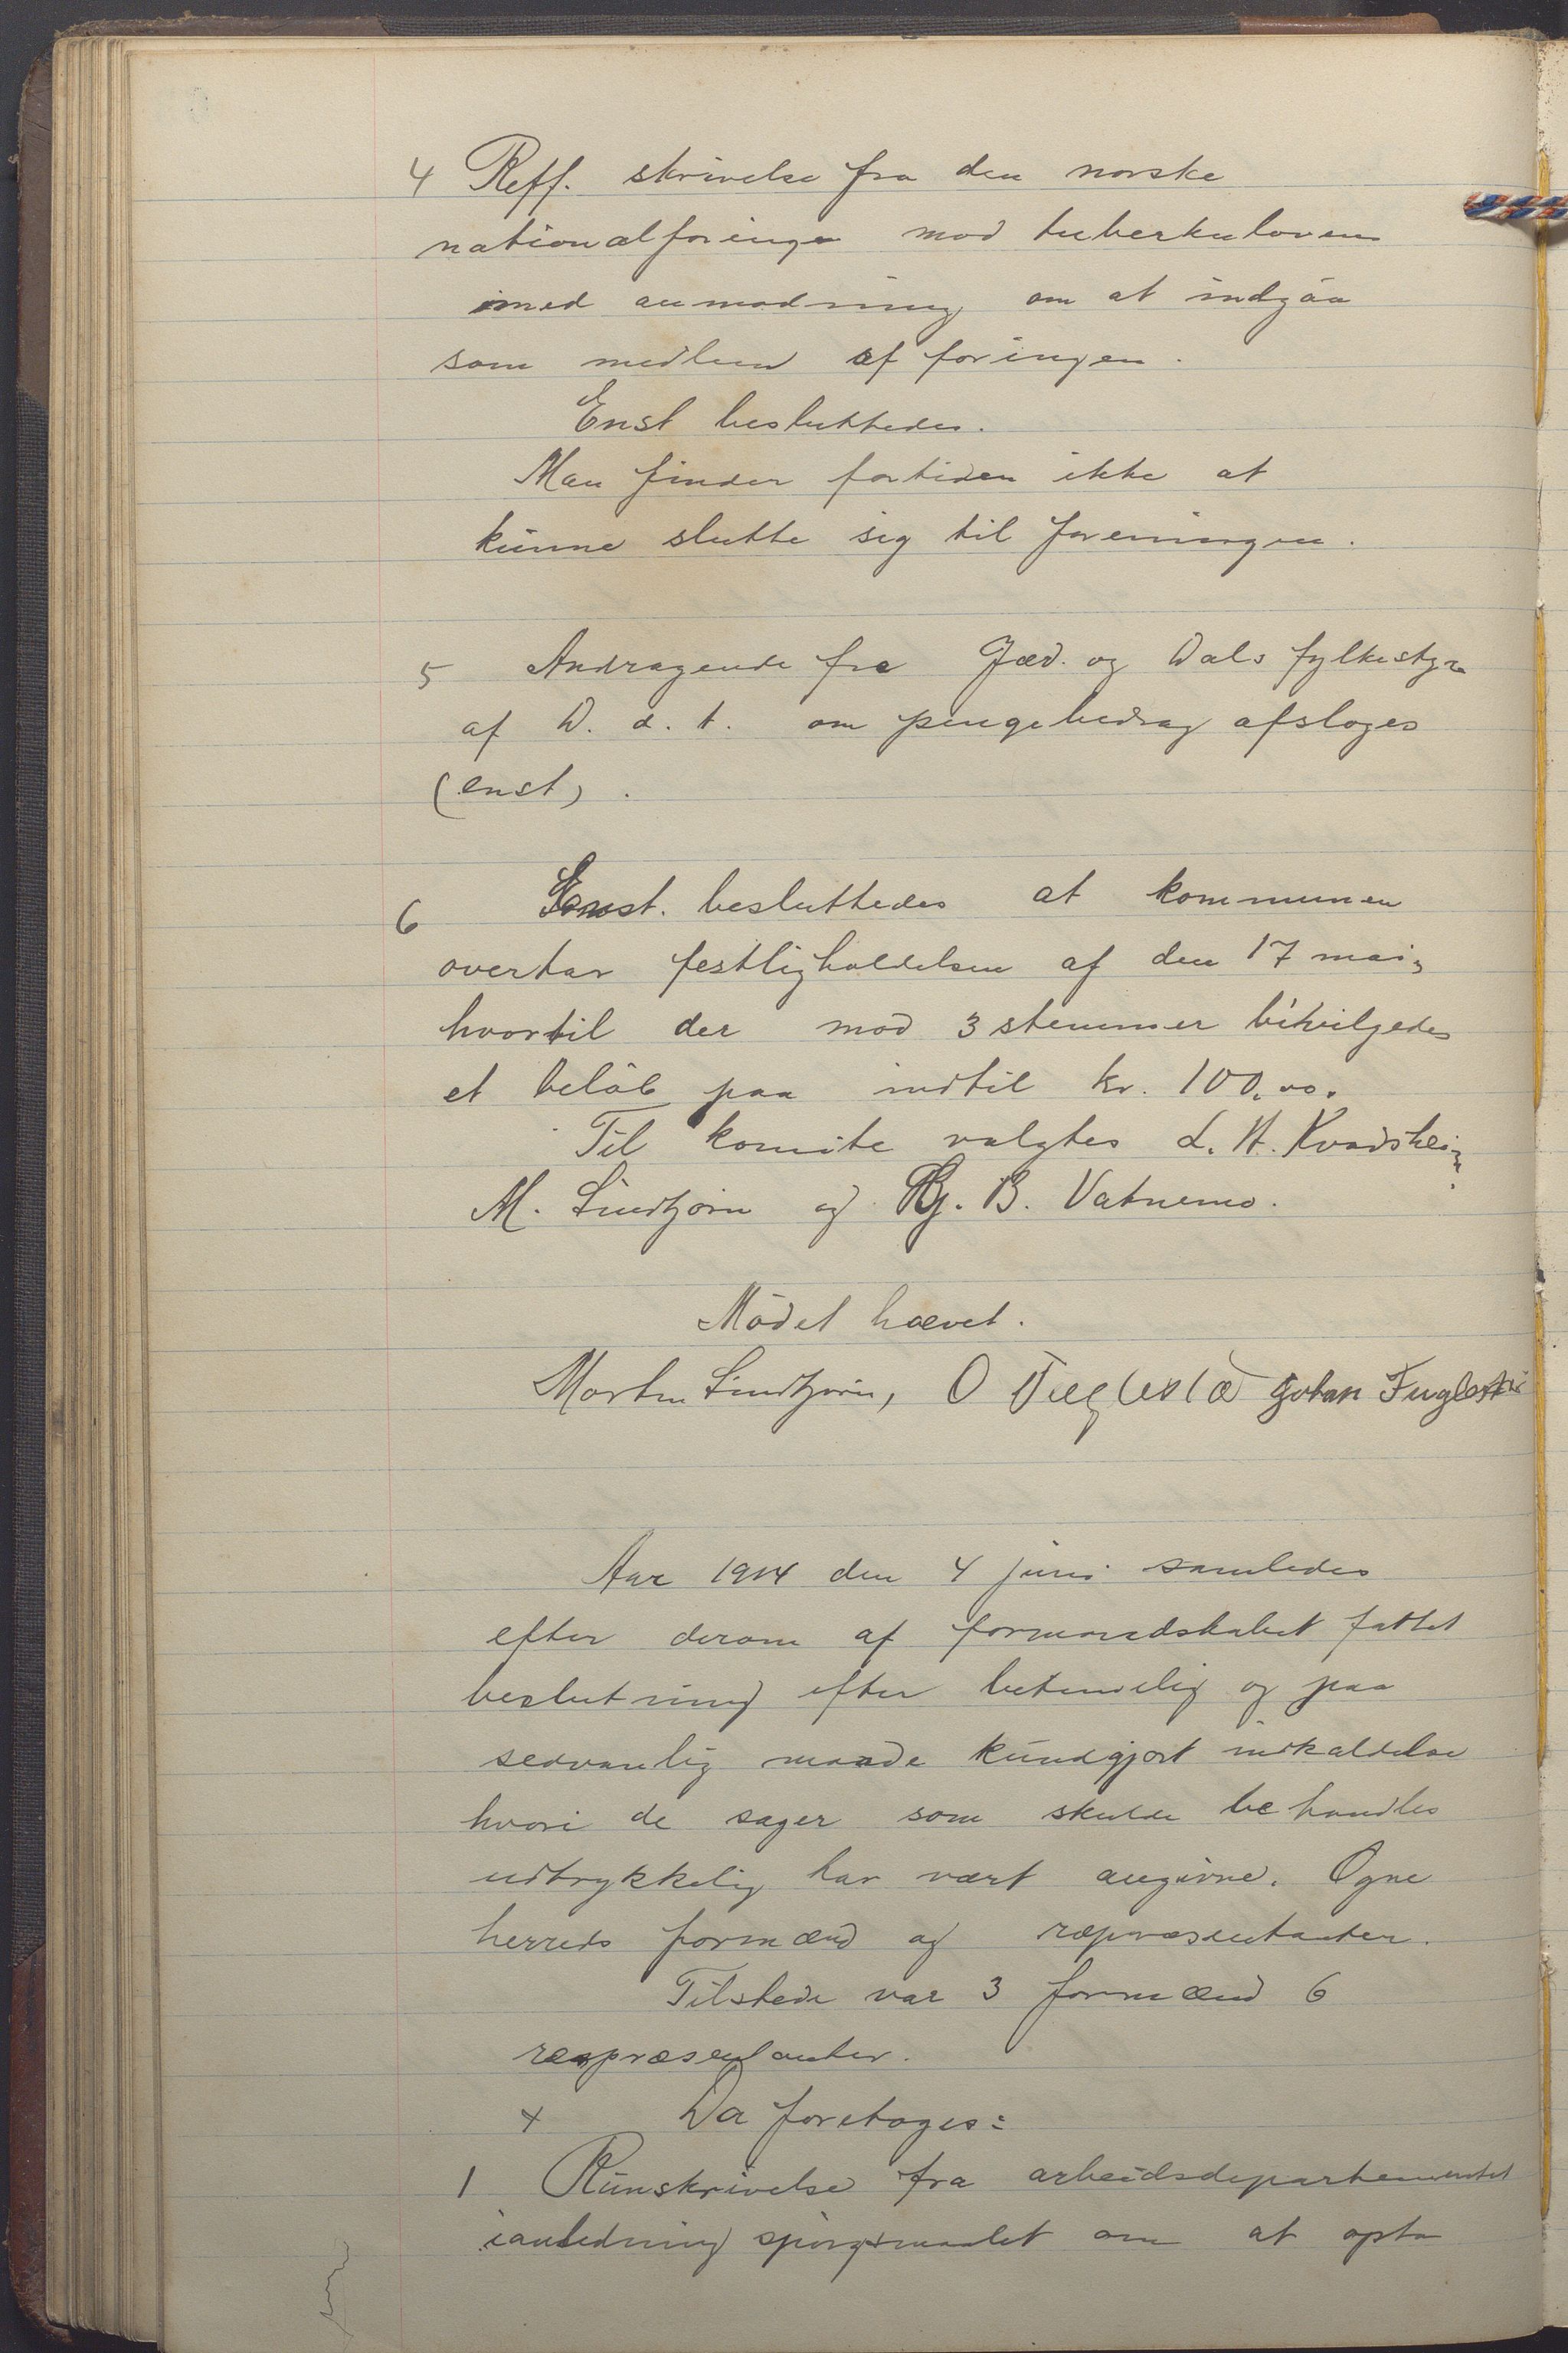 4 Reff. skrivelse fra den norske
nationalforinge mod tuberkulosen
med anmodning om at indgaa
som medlem af foringen.
Enst besluttedes.
Man finder fortiden ikke at
kunne slutte sig til foreningen.
5 Andragende fra Jæd. og Dals fylkestyre
af D. a. t. om pengebedrag afsloges
(enst).
6 Enst. besluttedes at kommunen
overtar festligholdelsen af den 17 mai,
hvortil der mod 3 stemmer bevilgedes
et beløb paa indtil kr. 100,00.
Til komite valgtes L. A. Kvadsheim
M. Lindtjørn og Bj. B. Vatnemo.
Mødet hævet.
Morten Lindtjørn, O Fuglestad Johan Fuglestad
Aar 1914 den 4 juni samledes
efter derom af formandskabet fattet
beslutning efter betimelig og paa
sedvanlig maade kundgjort indkaldelse
hvori de sager som skulde behandles
udtrykkelig har vært angivne. Ogne
herreds formænd og repræsentanter.
Tilstede var 3 formænd 6
repræsentanter.
+ Da foretoges:
1 Runskrivelse fra arbeidsdepartementet
ianledning spørgsmaalet om at opta